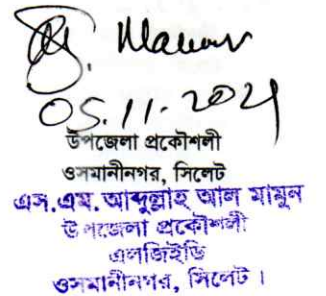 05.11.2021
উপজেলা প্রকৌশলী
ওসমানীনগর, সিলেট
এস.এম. আব্দুল্লাহ আল মামুন
উপজেলা প্রকৌশলী
এলজিইডি
ওসমানীনগর, সিলেট ।